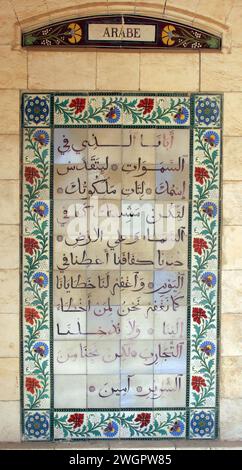 ARABE
أبانا الذي في
السموات * ليتقدس
اسمك * ليأت ملكوتك *
لتكن مشيئتك كما في
السماء على الارض *
خبزنا كفافنا أعطنا في
اليوم * واغفر لنا خطايانا
كما نغفر نحن لمن أخطأ
إلينا * ولا تدخلنا
التجارب * لكن نجنا من
الشرير * آمين *